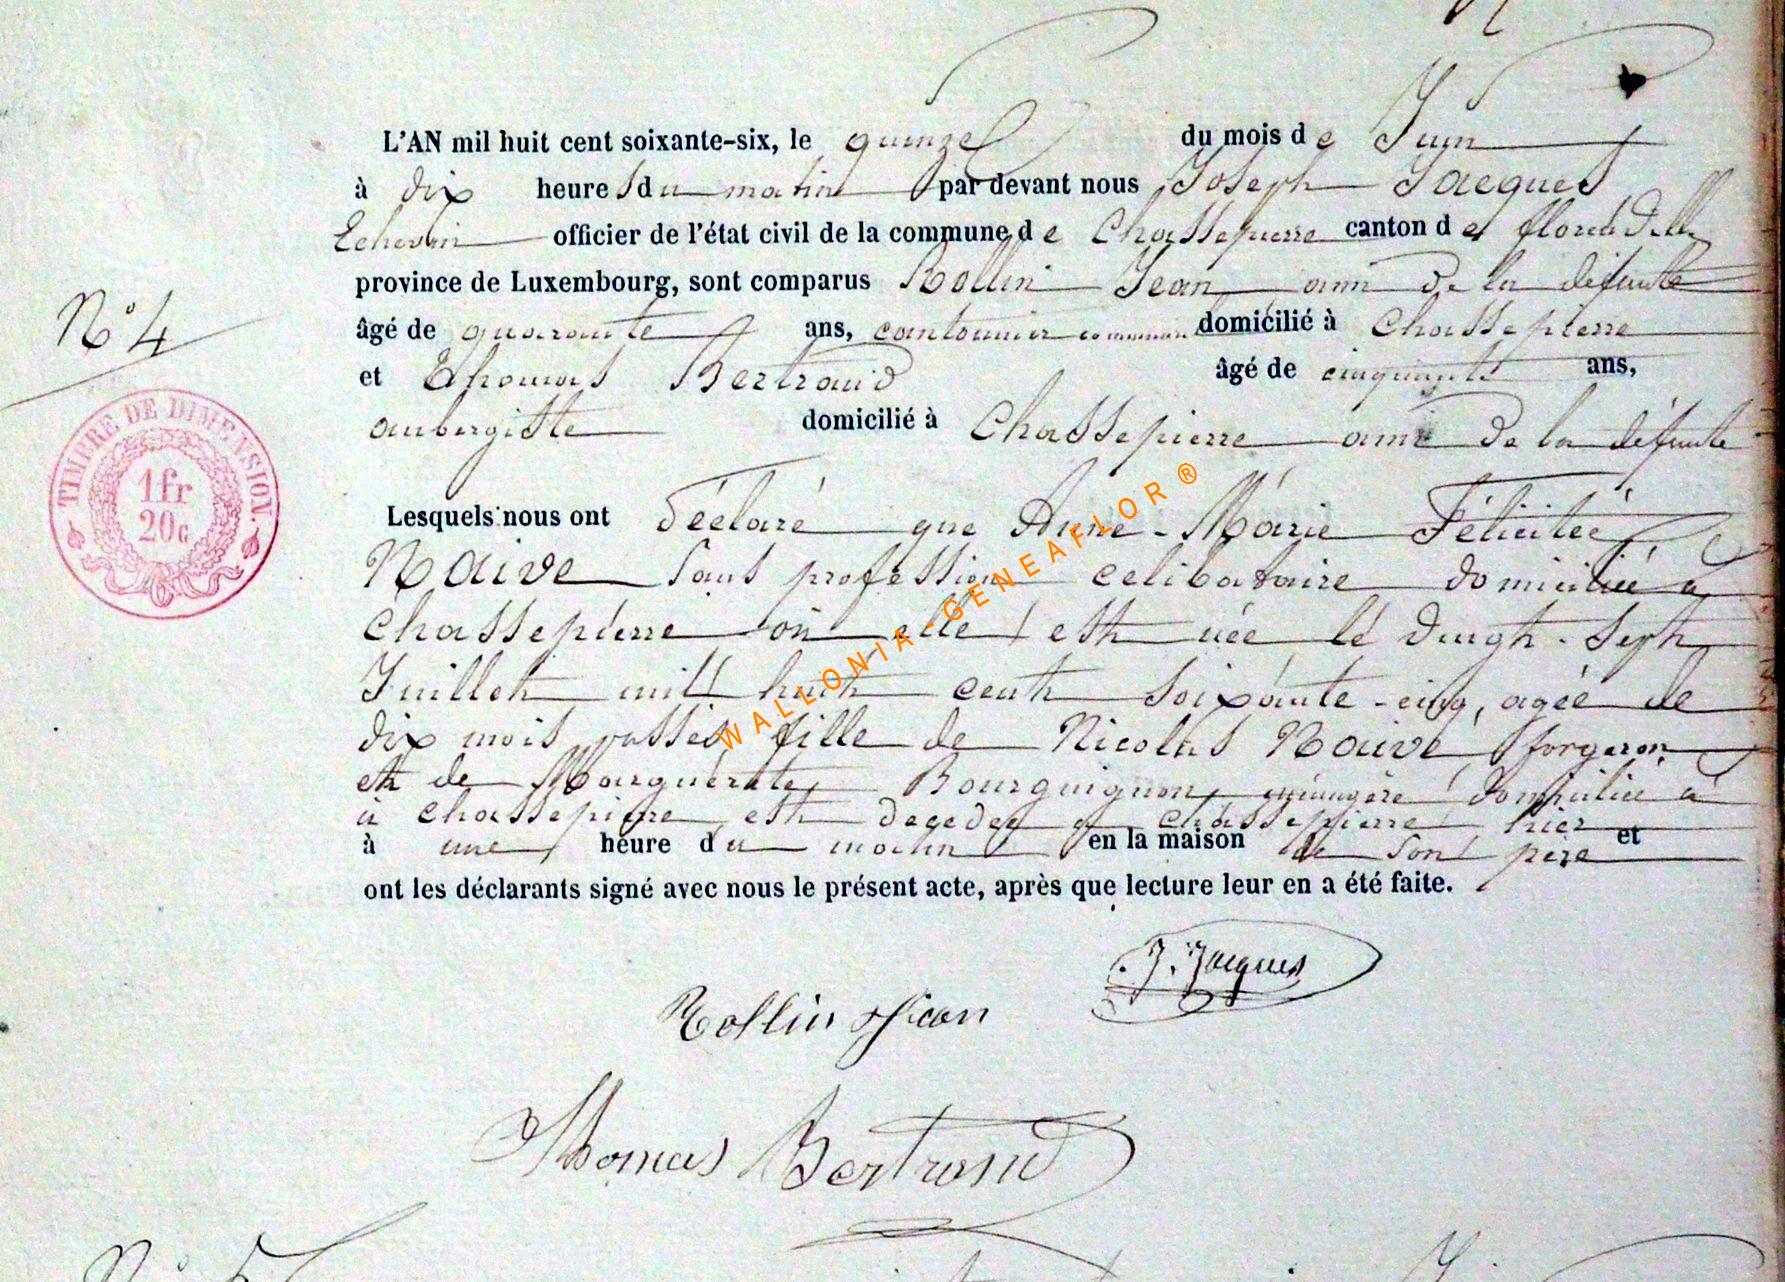 L'AN mil huit cent soixante-six, le quinze du mois de Juin
à dix heures du matin par devant nous Joseph Jacques
Echevin officier de l'état civil de la commune de Chassepierre canton de
province de Luxembourg, sont comparus Rollin Jean ami de la défunte
N° 4
âgé de quarante ans, cantonnier communal domicilié à Chassepierre
et Thomas Bertrand âgé de cinquante ans,
aubergiste domicilié à Chassepierre ami de la défunte
TIMBRE DE DIMENSION.
1fr
20c
Lesquels nous ont déclaré que Anne-Marie Félicitée
Naive sans profession celibataire domiciliée à
Chassepierre où elle est née le vingt-sept
Juillet mil huit cent soixante-cinq, agée de
dix mois passés fille de Nicolas Naive forgeron
et de Marguerite Bourguignon, ménagère domiciliée à
à Chassepierre, est décédée à Chassepierre hier
à une heure du matin en la maison de son père et
ont les déclarants signé avec nous le présent acte, après que lecture leur en a été faite.
WALLONIA GENEAFLOR ®
J. Jacques
Rollin Jean
Thomas Bertrand
N° 5